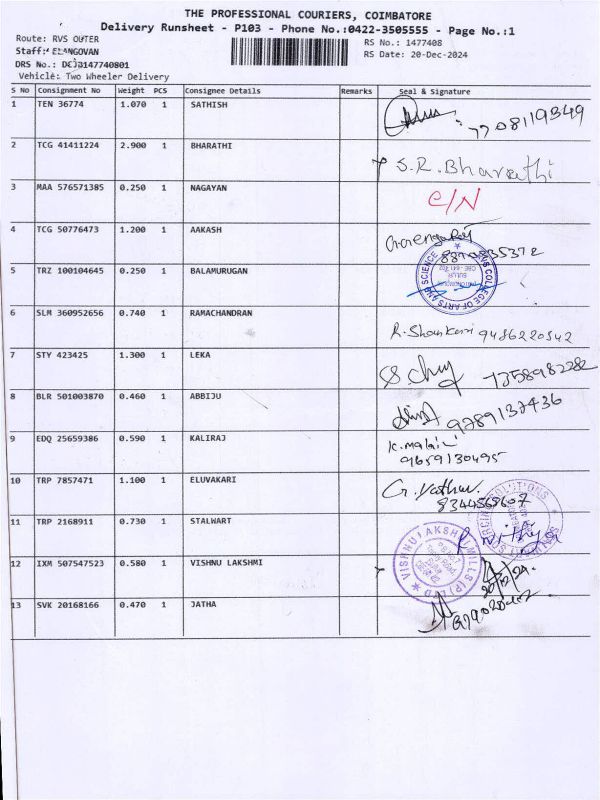 THE PROFESSIONAL COURIERS, COIMBATORE
Delivery Runsheet - P103 - Phone No.:0422-3505555 - Page No.:1
Route: RVS OUTER
Staff: ELANGOVAN
DRS No.: DCJB147740801
Vehicle: Two Wheeler Delivery
RS No.: 1477408
RS Date: 20-Dec-2024
S No Consignment No Weight PCS Consignee Details Remarks Seal & Signature
1 TEN 36774 1.070 1 SATHISH 7708119349
2 TCG 41411224 2.900 1 BHARATHI S.R.Bharathi
3 MAA 576571385 0.250 1 NAGAYAN C/N
4 TCG 50776473 1.200 1 AAKASH
5 TRZ 100104645 0.250 1 BALAMURUGAN COLLEGE OF ARTS AND SCIENCE
6 SLM 360952656 0.740 1 RAMACHANDRAN R.Shankari 9486220342
7 STY 423425 1.300 1 LEKA 7358982282
8 BLR 501003870 0.460 1 ABBIJU 9789137436
9 EDQ 25659386 0.590 1 KALIRAJ K.malini
9659130495
10 TRP 7857471 1.100 1 ELUVAKARI
8344568607
11 TRP 2168911 0.730 1 STALWART P. Nithya
12 IXM 507547523 0.580 1 VISHNU LAKSHMI VISHNU LAKSHMI MILLS (P) LTD
20/12/24
13 SVK 20168166 0.470 1 JATHA